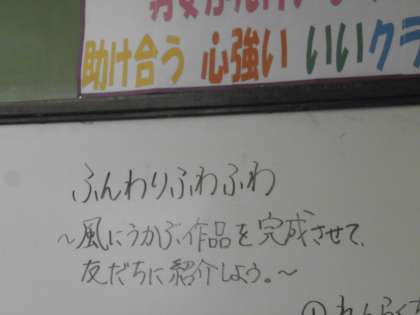 助け合う 心強い いいクラ
ふんわりふわふわ
～風にうかぶ作品を完成させて、
友だちに紹介しよう。～